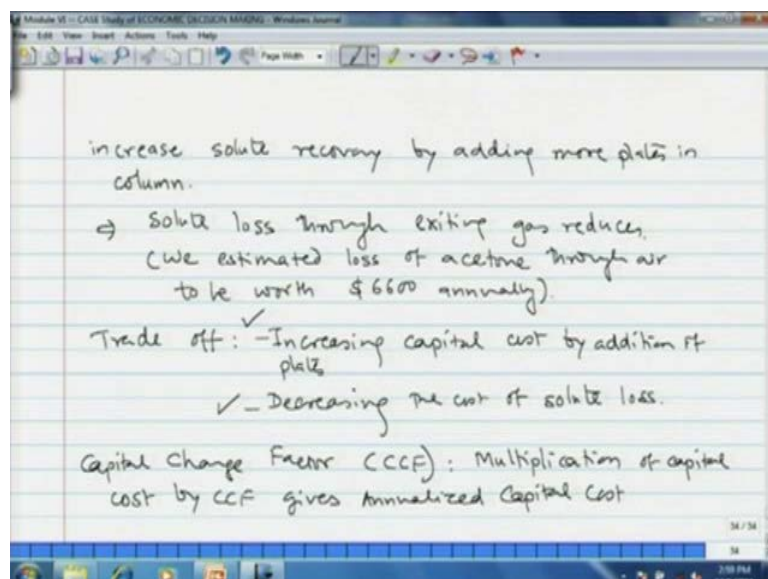 Module VI -- CASE Study of ECONOMIC DECISION MAKING - Windows Journal
File Edit View Insert Actions Tools Help
Page Width
increase solute recovery by adding more plates in
column.
⇒ Solute loss through exiting gas reduces.
(We estimated loss of acetone through air
to be worth $6600 annually).
Trade off : - Increasing capital cost by addition of
plates
✓ - Decreasing the cost of solute loss.
Capital Change Factor (CCF) : Multiplication of capital
cost by CCF gives Annualized Capital Cost
34 / 34
34
2:59 PM